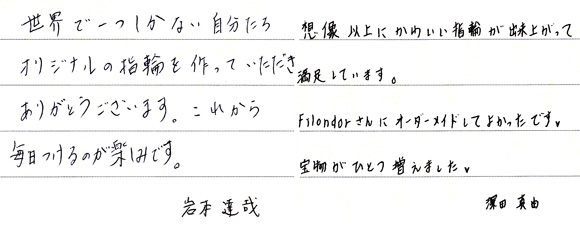 世界で一つしかない自分たち
オリジナルの指輪を作っていただき
ありがとうございます。これから
毎日つけるのが楽しみです。
岩本 達哉
想像以上にかわいい指輪が出来上がって
満足しています。
Filondorさんにオーダーメイドしてよかったです。
宝物がひとつ増えました。
深田 真由